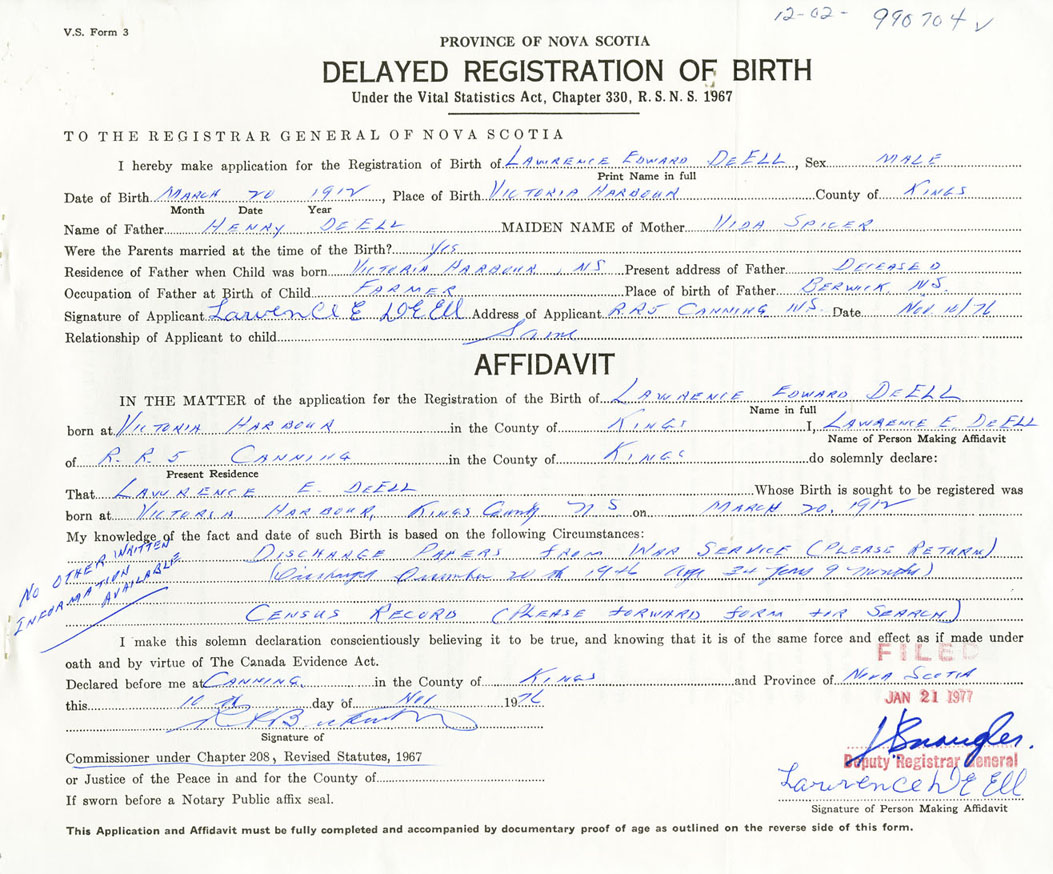 12-02- 990704 ✓
V.S. Form 3
PROVINCE OF NOVA SCOTIA
DELAYED REGISTRATION OF BIRTH
Under the Vital Statistics Act, Chapter 330, R.S.N.S. 1967
TO THE REGISTRAR GENERAL OF NOVA SCOTIA
I hereby make application for the Registration of Birth of LAWRENCE EDWARD DEELL, Sex MALE
Print Name in full
Date of Birth MARCH 20 1912, Place of Birth VICTORIA HARBOUR County of KINGS
Month Date Year
Name of Father HENRY DEELL MAIDEN NAME of Mother VIDA SPICER
Were the Parents married at the time of the Birth? Yes
Residence of Father when Child was born VICTORIA HARBOUR, NS Present address of Father DECEASED
Occupation of Father at Birth of Child FARMER Place of birth of Father BERWICK NS
Signature of Applicant Lawrence E DeEll Address of Applicant RR5 CANNING NS. Date Nov 10/76
Relationship of Applicant to child Same
AFFIDAVIT
IN THE MATTER of the application for the Registration of the Birth of LAWRENCE EDWARD DEELL
Name in full
born at VICTORIA HARBOUR in the County of KINGS I, LAWRENCE E. DEELL
Name of Person Making Affidavit
of R.R.5 CANNING in the County of KINGS do solemnly declare:
Present Residence
That LAWRENCE E. DEELL Whose Birth is sought to be registered was
born at VICTORIA HARBOUR, KINGS County NS on MARCH 20, 1912
My knowledge of the fact and date of such Birth is based on the following Circumstances:
DISCHARGE PAPERS FROM WAR SERVICE (PLEASE RETURN)
(Discharged December 20th 1946 age 34 years 9 months)
NO OTHER WRITTEN
INFORMATION
AVAILABLE
CENSUS RECORD (PLEASE FORWARD FORM FOR SEARCH)
I make this solemn declaration conscientiously believing it to be true, and knowing that it is of the same force and effect as if made under
oath and by virtue of The Canada Evidence Act.
FILED
Declared before me at CANNING, in the County of KINGS and Province of NOVA SCOTIA
this 10th day of Nov 1976
JAN 21 1977
Signature of
Commissioner under Chapter 208, Revised Statutes, 1967
Deputy Registrar General
or Justice of the Peace in and for the County of
Lawrence DeEll
If sworn before a Notary Public affix seal.
Signature of Person Making Affidavit
This Application and Affidavit must be fully completed and accompanied by documentary proof of age as outlined on the reverse side of this form.